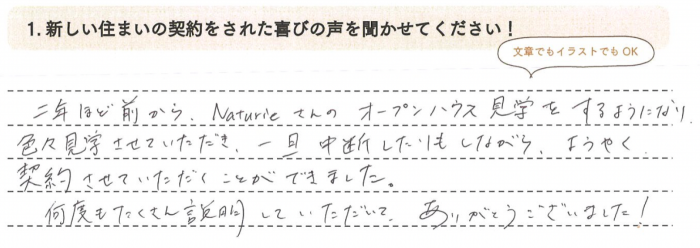 1. 新しい住まいの契約をされた喜びの声を聞かせてください！
文章でもイラストでもOK
二年ほど前から、Naturieさんの オープンハウス見学をするようになり、
色々見学させていただき、一旦中断したりもしながら、ようやく
契約させていただくことができました。
何度もたくさん説明していただいて、ありがとうございました！